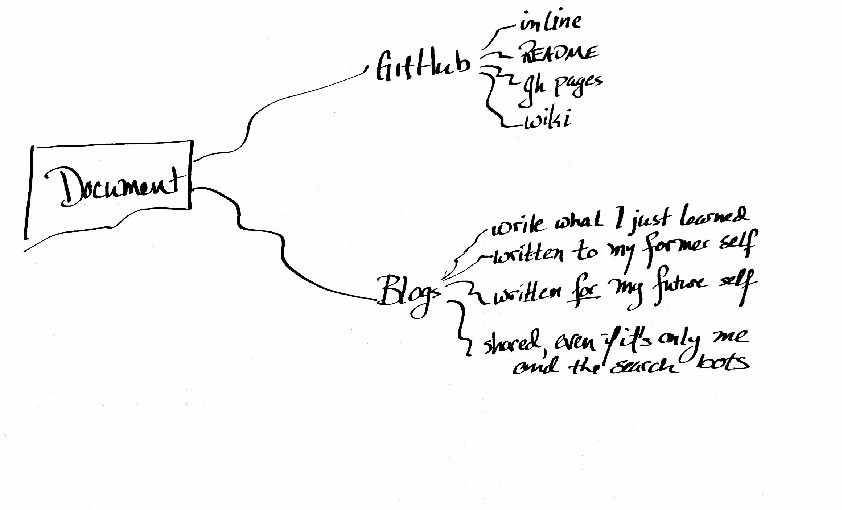 inline
GitHub
README
gh pages
wiki
Document
write what I just learned
written to my former self
Blogs
written for my future self
shared, even if it's only me
and the search bots